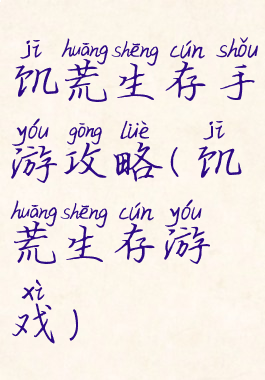 jī huāng shēng cún shǒu
饥荒生存手
yóu gōng lüè jī
游攻略(饥
huāng shēng cún yóu
荒生存游
xì
戏)